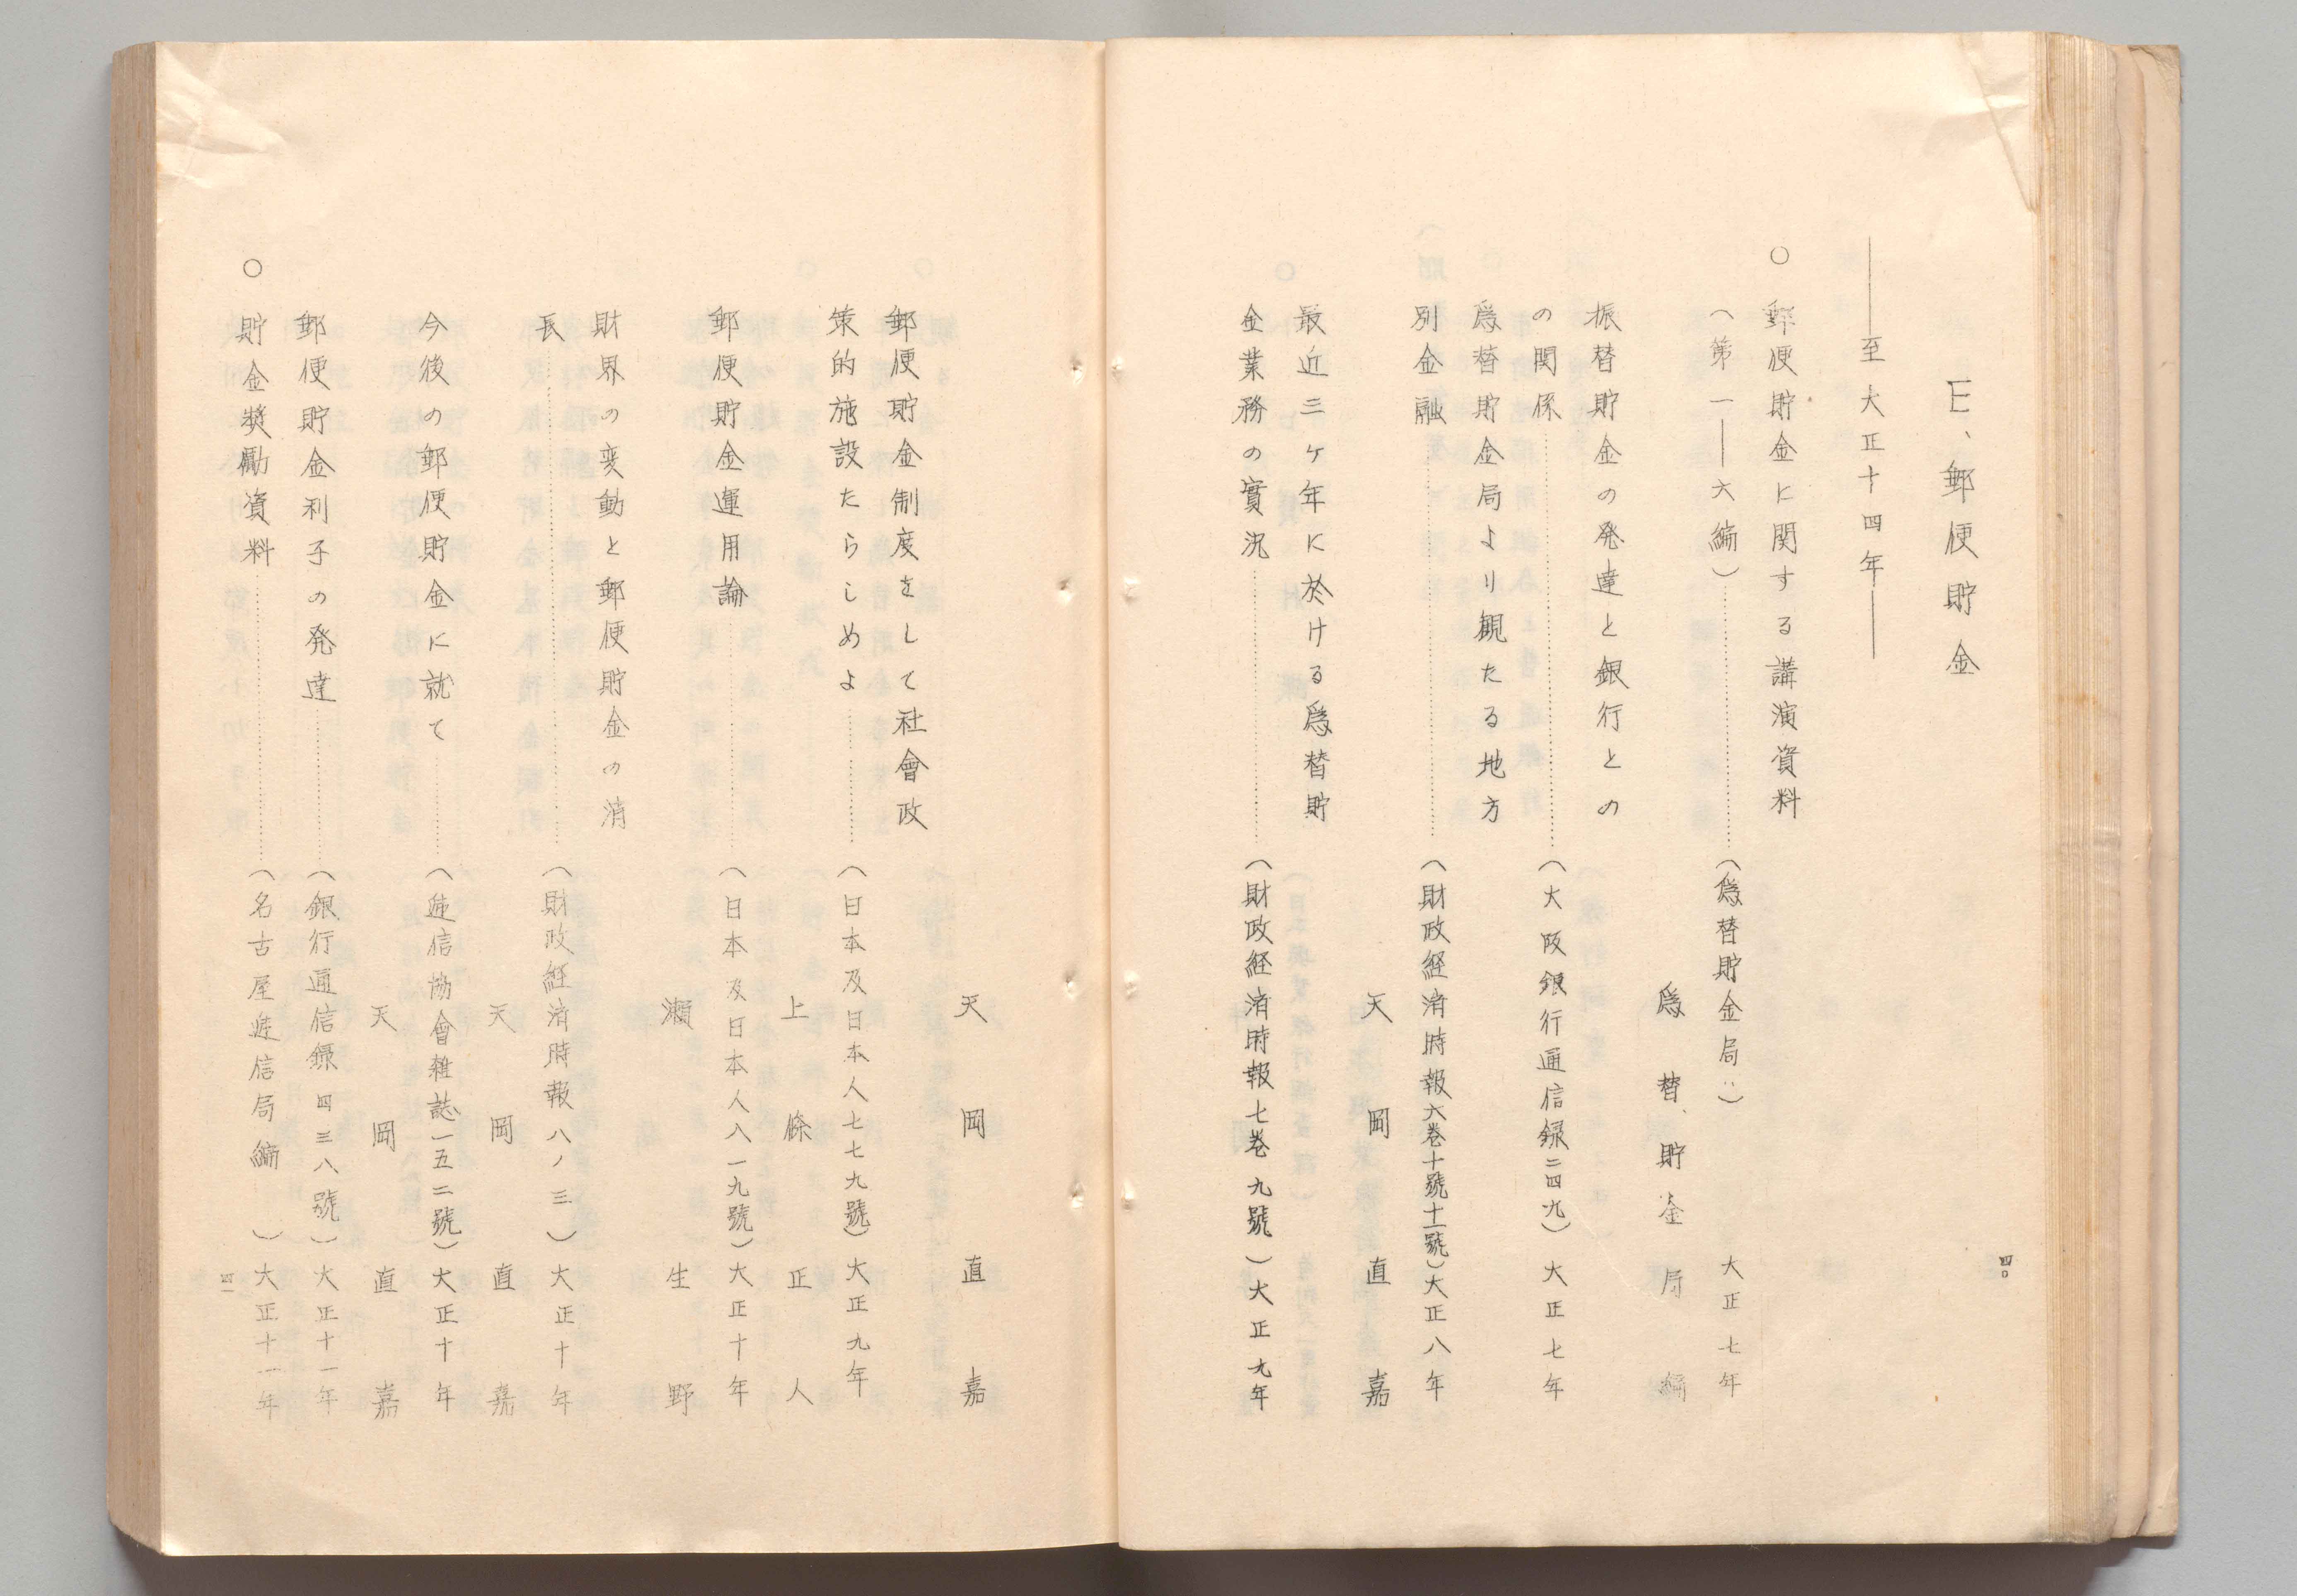 E、郵便貯金
——至大正十四年——
○郵便貯金に関する講演資料
(第一——六編)……(為替貯金局〃)大正七年
為替貯金局編
振替貯金の発達と銀行との
の関係……(大阪銀行通信録二四九)大正七年
為替貯金局より観たる地方
別金融……(財政経済時報六巻十號十一號)大正八年
天岡直嘉
最近三ヶ年に於ける為替貯
金業務の實況……(財政経済時報七巻九號)大正九年
四〇
天岡直嘉
郵便貯金制度をして社會政
策的施設たらしめよ……(日本及日本人七七九號)大正九年
上條正人
郵便貯金運用論……(日本及日本人八一九號)大正十年
瀬生野
財界の変動と郵便貯金の消
長……(財政経済時報八ノ三)大正十年
天岡直嘉
今後の郵便貯金に就て……(逓信協會雑誌一五二號)大正十年
天岡直嘉
郵便貯金利子の発達……(銀行通信録四三八號)大正十一年
○貯金奬勵資料……(名古屋逓信局編)大正十一年
四一